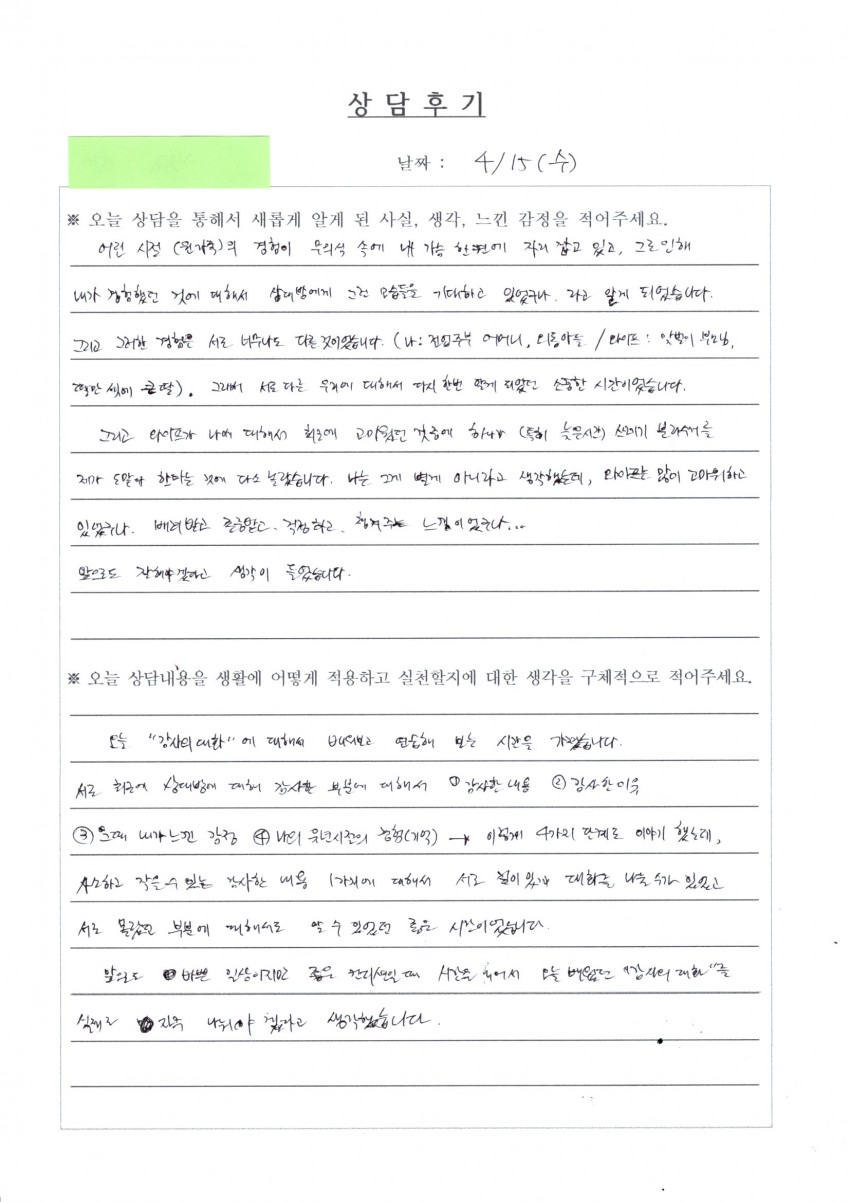 상 담 후 기
날짜 : 4/15(수)
※ 오늘 상담을 통해서 새롭게 알게 된 사실, 생각, 느낀 감정을 적어주세요.
어린 시절 (원가족)의 경험이 무의식 속에 내 가슴 한편에 자리 잡고 있고, 그로인해
내가 경험했던 것에 대해서 상대방에게 그런 모습들을 기대하고 있었구나. 라고 알게 되었습니다.
그리고 그러한 경험은 서로 너무나도 다른것이었습니다. (나: 전업주부 어머니, 외동아들 / 와이프: 맞벌이 부모님,
딸만 셋에 큰딸). 그래서 서로 다른 우리에 대해서 다시 한번 알게 되었던 소중한 시간이었습니다.
그리고 와이프가 나에 대해서 최근에 고마웠던 것중에 하나가 (특히 늦은시간) 쓰레기 분리수거를
제가 도맡아 한다는 것에 다소 놀랐습니다. 나는 그게 별게 아니라고 생각했는데, 와이프는 많이 고마워하고
있었구나. 배려받고 존중받고. 걱정하고. 챙겨주는 느낌이었구나...
앞으로도 잘해야겠다고 생각이 들었습니다.
※ 오늘 상담내용을 생활에 어떻게 적용하고 실천할지에 대한 생각을 구체적으로 적어주세요.
오늘 "감사의 대화"에 대해서 배워보고 연습해 보는 시간을 가졌습니다.
서로 최근에 상대방에 대해 감사한 부분에 대해서 ① 감사한 내용 ② 감사한 이유
③ 그때 내가 느낀 감정 ④ 나의 유년시절의 경험(기억) → 이렇게 4가지 단계로 이야기 했는데,
사소하고 작을수 있는 감사한 내용 1가지에 대해서 서로 깊이 있게 대화를 나눌 수가 있었고
서로 몰랐던 부분에 대해서도 알 수 있었던 좋은 시간이었습니다.
앞으로도 바쁜 일상이지만 좋은 컨디션일때 시간을 내어서 오늘 배웠던 "감사의 대화"를
실제로 자주 나눠야 겠다고 생각했습니다.